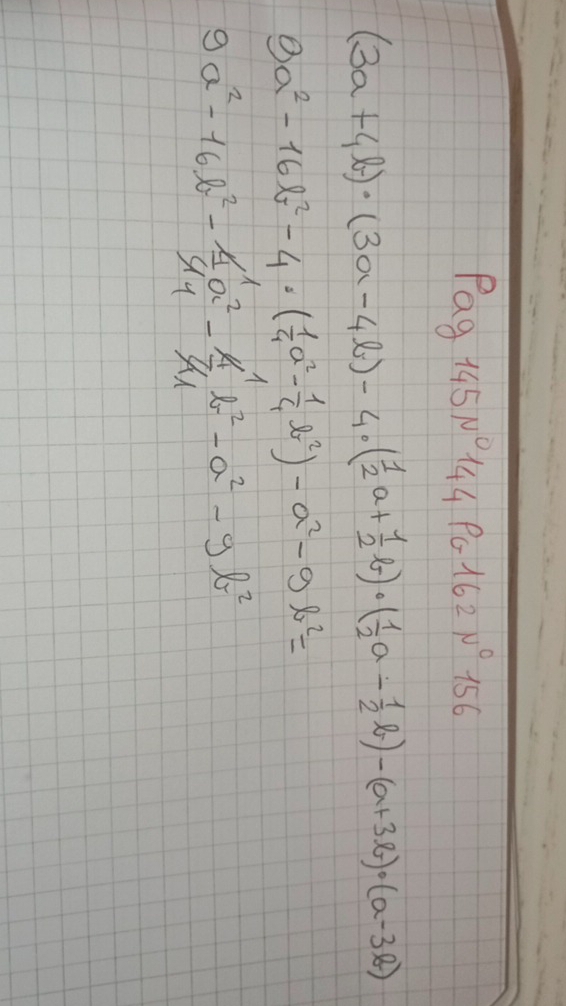 Pag 145 N° 144 Pa 162 N° 156
(3a+4b)·(3a-4b)-4·(1/2a+1/2b)·(1/2a-1/2b)-(a+3b)·(a-3b)
9a²-16b²-4·(1/4a²-1/4b²)-a²-9b²=
9a²-16b²-4¹/4₁a²-4¹/4₁b²-a²-9b²